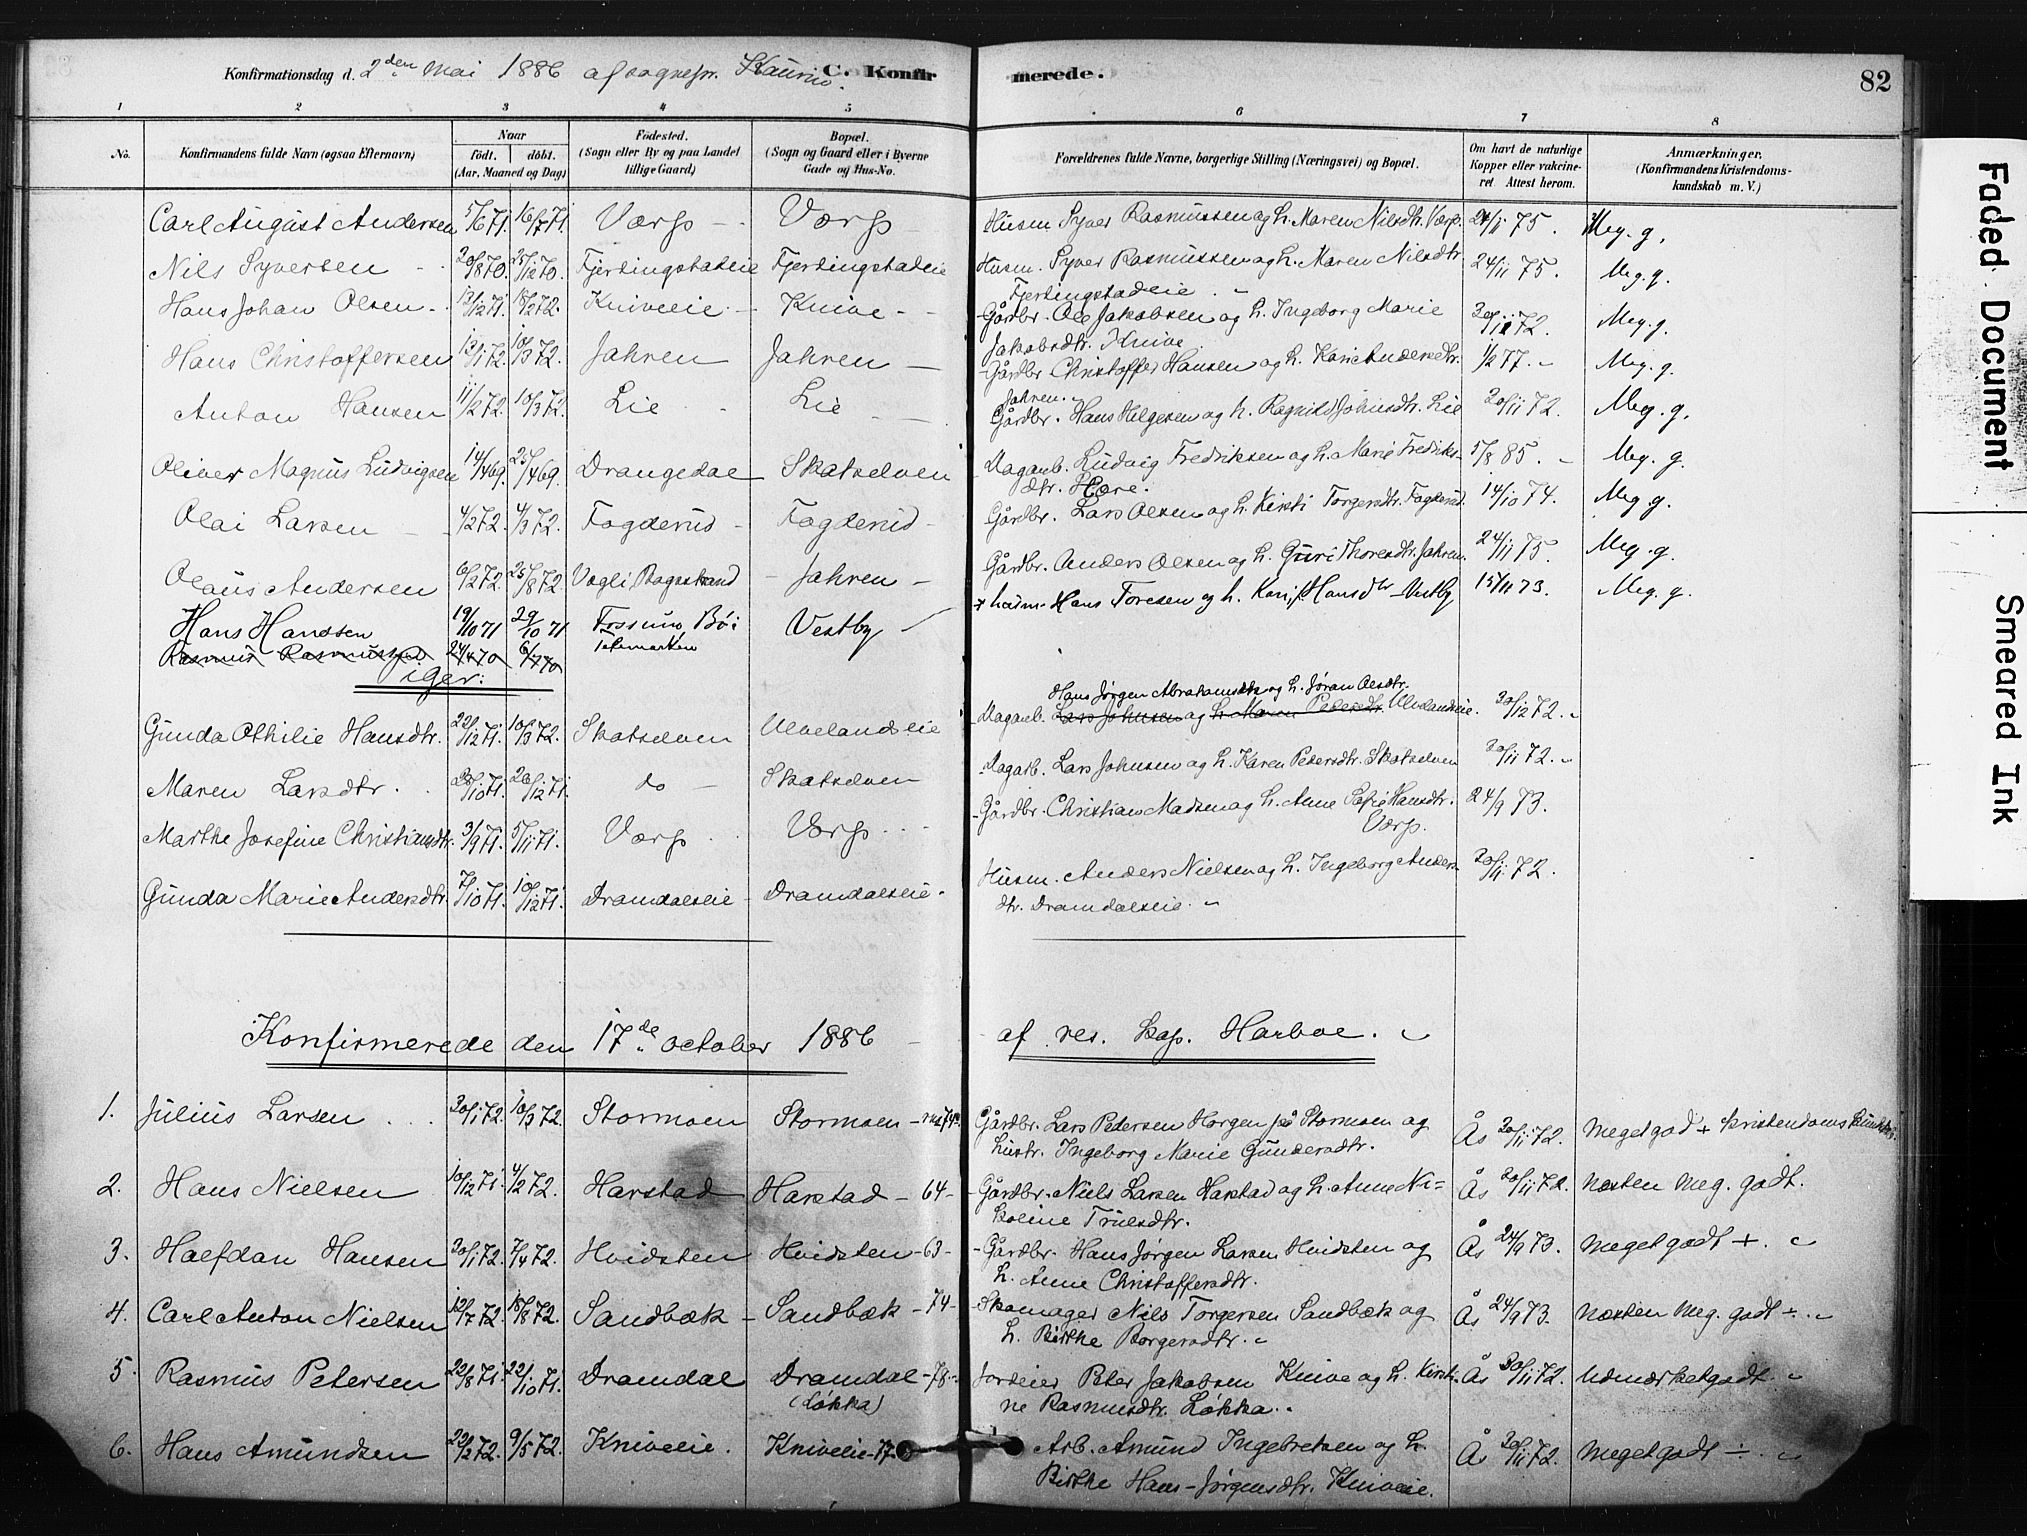 Konfirmationsdag d. 2den Mai 1886 af sognepr. C. Konfirmerede. 82
1 2 3 4 5 6 7 8
No. Konfirmandens fulde Navn (ogsaa Efternavn) Naar født. døbt. (Aar, Maaned og Dag) Fødested. (Sogn eller By og paa Landet tillige Gaard) Bopæl. (Sogn og Gaard eller i Byerne Gade og Hus-No. Forældrenes fulde Navne, borgerlige Stilling (Næringsvei) og Bopæl. Om havt de naturlige Kopper eller vakcineret. Attest herom. Anmærkninger. (Konfirmandens Kristendomskundskab m. V.)
Carl August Andersen 5/6 71. 16/7 71. Værp Værp Husm Syver Rasmussen og h. Maren Nilsdtr. Værp. 24/11 75. Meg. g.
Nils Syversen 20/8 70. 25/12 70. Fjerdingstadeie Fjerdingstadeie Husm. Syver Rasmussen og h. Maren Nilsdtr. 24/11 75. Meg. g.
Fjerdingstadeie
Hans Johan Olsen 13/12 71. 18/2 72. Kniveeie Knive Gårdbr. Ole Jakobsen og h. Ingeborg Marie 30/11 72. Meg. g.
Jakobsdtr. Knive
Hans Christoffersen 13/1 72. 10/3 72. Jahren Jahren Gårdbr Christoffer Hansen og h. Kari Andersdtr. 1/2 77. Meg. g.
Jahren.
Anton Hansen 11/2 72. 10/3 72. Lie Lie Gårdbr. Hans Helgesen og h. Ragnild Johnsdtr. Lie 20/11 72. Meg. g.
Oliver Magnus Ludvigsen 14/4 69. 25/4 69. Drangedal Skotselven Dagarb. Ludvig Fredriksen og h. Marie Fredriks- 5/8 85. Meg. g.
dtr. Hære.
Olai Larsen 4/2 72. 4/3 72. Fagderud Fagderud Gårdbr. Lars Olsen og h. Kirsti Torgersdtr. Fagderud. 14/10 74. Meg. g.
Olaus Andersen 6/2 72. 25/8 72. Vægli Ragestrand Jahren Gårdbr. Anders Olsen og h. Guri Thoresdtr. Jahren. 24/11 75. Meg. g.
Hans Hansen 19/10 71 29/10 71 Fossum Bøi Telemarken Vestby husm. Hans Toresen og h. Kari Hansdtr Vestby 15/11 73. Meg. g.
Rasmus Rasmussen 24/4 70 6/7 70
Piger:
Hans Jørgen Abrahamsen og h. Jøran Olsdtr.
Gunda Othilie Hansdtr. 22/12 71. 10/3 72. Skotselven Ulvelandseie Dagarb. Lars Johnsen og h. Maren Pedersdtr. Ulvelandseie. 30/12 72.
Maren Larsdtr. 28/10 71. 26/12 71. do Skotselven Dagarb. Lars Johnsen og h. Karen Pedersdtr. Skotselven 30/11 72.
Marthe Josefine Christiansdtr. 3/9 71. 5/11 71. Værp Værp Gårdbr. Christian Madsen og h. Anne Sofie Hansdtr. 24/9 73.
Værp.
Gunda Marie Andersdtr. 7/10 71. 10/12 71. Dramdalseie Dramdalseie Husm. Anders Nielsen og h. Ingeborg Anders- 20/11 72.
dtr. Dramdalseie
Konfirmerede den 17de october 1886 af res. Kap. Harboe.
1. Julius Larsen 30/1 72. 10/3 72. Stormoen Stormoen Gårdbr. Lars Pedersen Horgen på Stormoen og Ås 20/11 72. Meget god + kristendomskundskab.
hustr. Ingeborg Marie Gundersdtr.
2. Hans Nielsen 10/12 71. 4/2 72. Harstad Harstad - 64 - Gårdbr. Niels Larsen Harstad og h. Anne Ni= Ås 20/11 72. næsten meg. godt.
koline Trulsdtr.
3. Halfdan Hansen 20/1 72. 7/4 72. Hvidsten Hvidsten - 63 - Gårdbr. Hans Jørgen Larsen Hvidsten og Ås 24/9 73. Meget godt +.
h. Anne Christoffersdtr.
4. Carl Anton Nielsen 12/7 72. 18/8 72. Sandbæk Sandbæk - 74 - Skomager Nils Torgersen Sandbæk og Ås 24/9 73. næsten meg. godt ÷.
h. Birthe Borgersdtr.
5. Rasmus Petersen 22/8 71. 22/10 71. Dramdal Dramdal - 78 - Jordeier Peter Jakobsen Knive og h. Kirsti- Ås 30/11 72. Udmærket godt.
(Løkka) ne Rasmusdtr. Løkka.
6. Hans Amundsen 22/2 72. 9/5 72. Kniveeie. Kniveeie - 17 Arb. Amund Ingebretsen og h. Ås 20/11 72. Meget godt ÷
Birthe Hans-Jørgensdtr. Kniveeie.
Faded Document
Smeared Ink